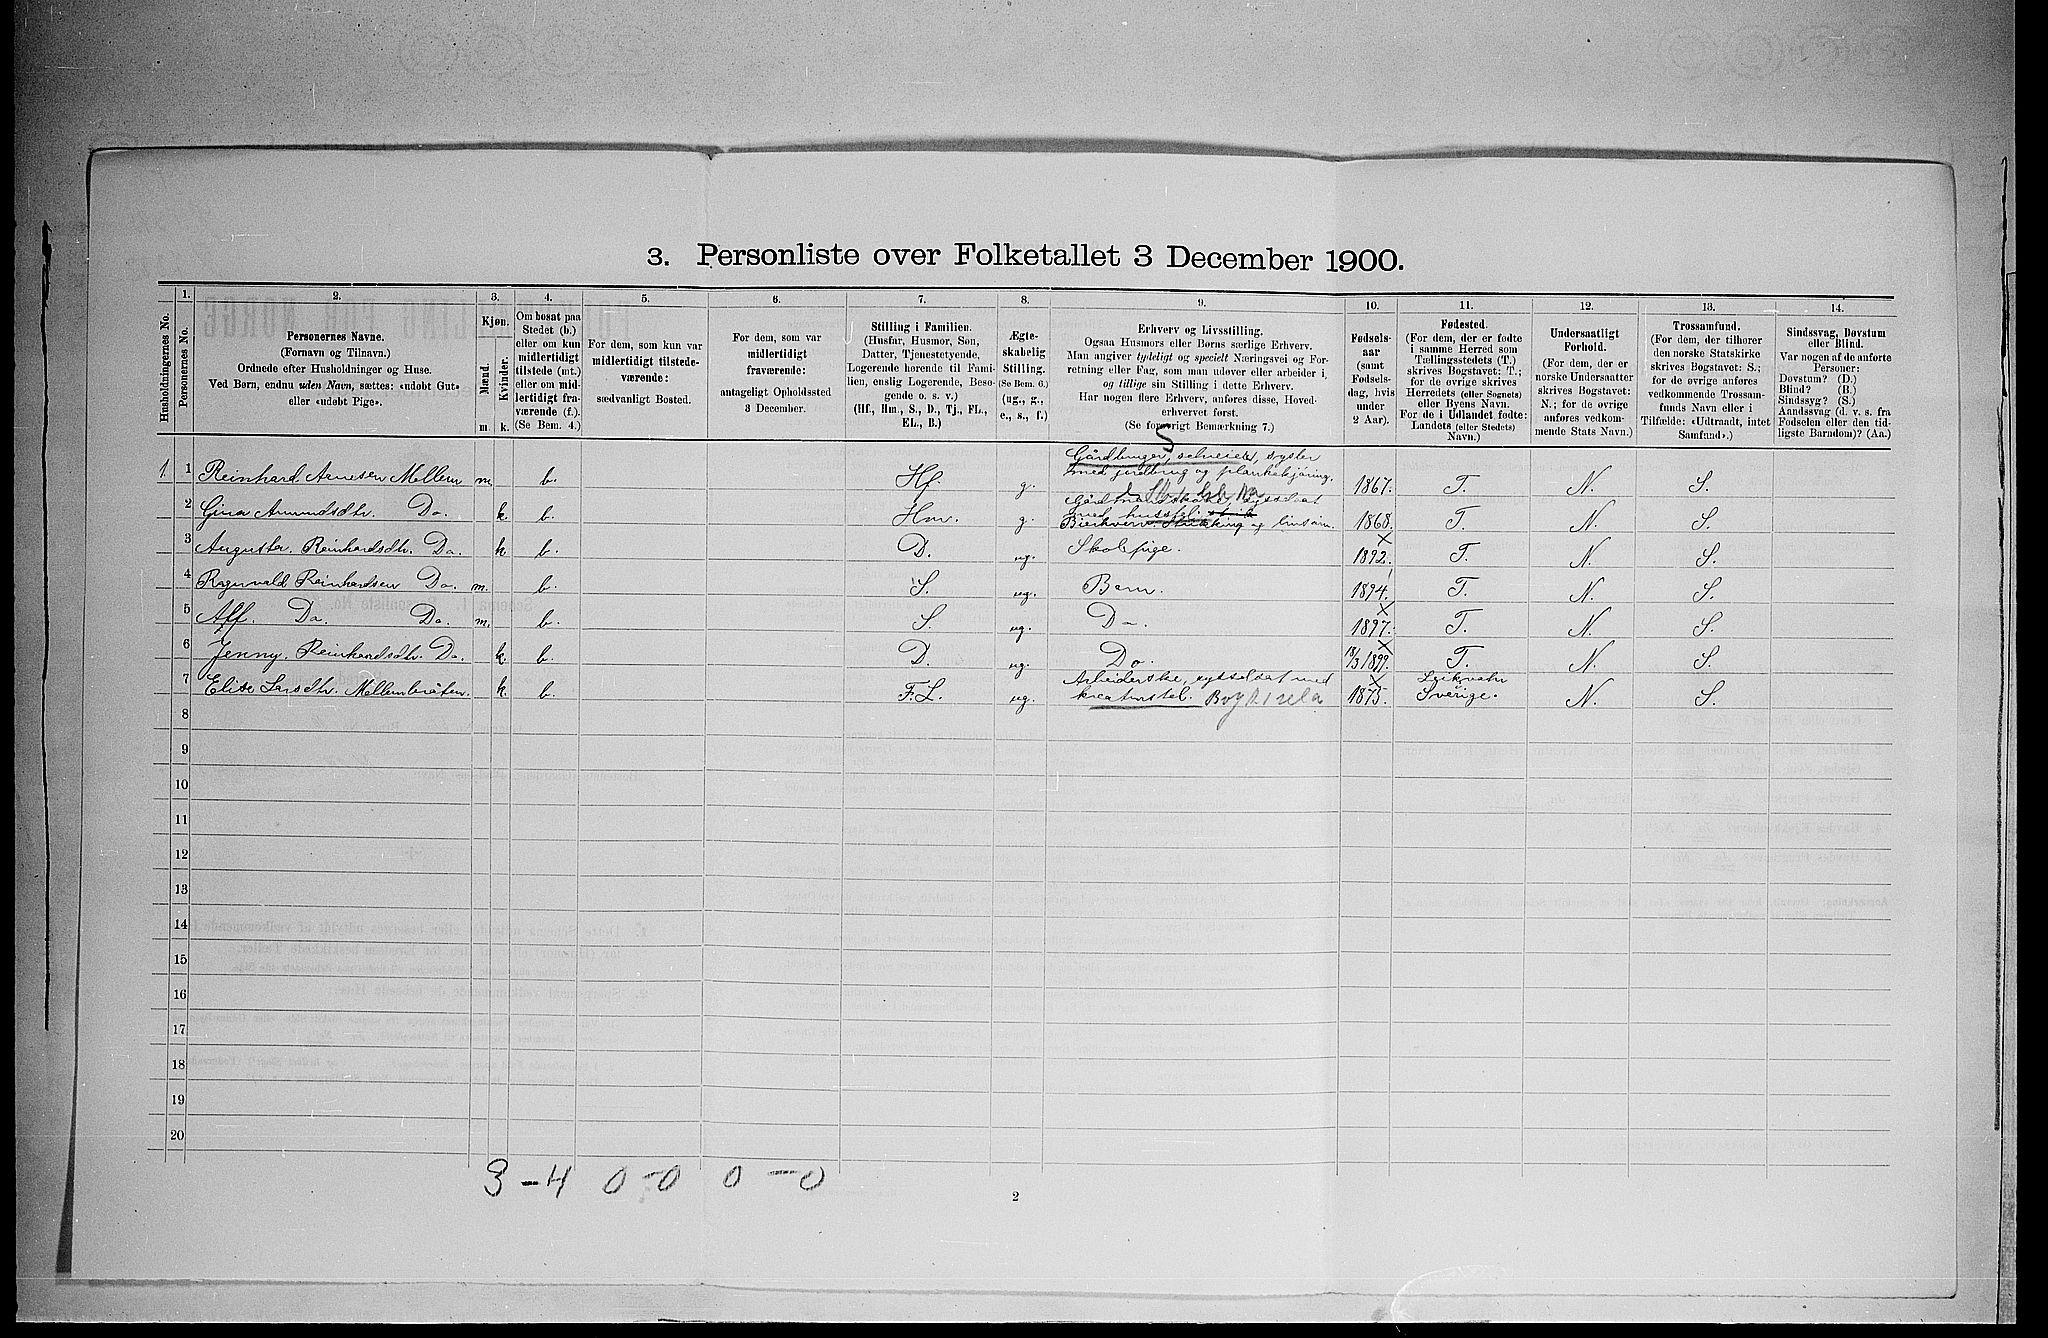 3. Personliste over Folketallet 3 December 1900.
Husholdningernes No.
1.
Personernes No.
2.
Personernes Navne.
(Fornavn og Tilnavn.)
Ordnede efter Husholdninger og Huse.
Ved Børn, endnu uden Navn, sættes: «udøbt Gut»
eller «udøbt Pige».
3.
Kjøn.
Mænd.
m.
Kvinder.
k.
4.
Om bosat paa
Stedet (b.)
eller om kun
midlertidigt
tilstede (mt.)
eller om mid-
lertidigt fra-
værende (f.).
(Se Bem. 4.)
5.
For dem, som kun var
midlertidigt tilstede-
værende:
sædvanligt Bosted.
6.
For dem, som var
midlertidigt
fraværende:
antageligt Opholdssted
3 December.
7.
Stilling i Familien.
(Husfar, Husmor, Søn,
Datter, Tjenestetyende,
Logerende hørende til Fami-
lien, enslig Logerende, Besø-
gende o. s. v.)
(Hf., Hm., S., D., Tj., FL.,
EL., B.)
8.
Ægte-
skabelig
Stilling.
(Se Bem. 6.)
(ug., g.,
e., s., f.)
9.
Erhverv og Livsstilling.
Ogsaa Husmors eller Børns særlige Erhverv.
Man angiver tydeligt og specielt Næringsvei og For-
retning eller Fag, som man udøver eller arbeider i,
og tillige sin Stilling i dette Erhverv.
Har nogen flere Erhverv, anføres disse, Hoved-
erhvervet først.
(Se forøvrigt Bemærkning 7.)
10.
Fødsels-
aar
(samt
Fødsels-
dag, hvis
under
2 Aar).
11.
Fødested.
(For dem, der er fødte
i samme Herred som
Tællingsstedets (T.)
skrives Bogstavet: T.;
for de øvrige skrives
Herredets (eller Sognets)
eller Byens Navn.
For de i Udlandet fødte:
Landets (eller Stedets)
Navn.)
12.
Undersaatligt
Forhold.
(For dem, der er
norske Undersaatter
skrives Bogstavet:
N.; for de øvrige
anføres vedkom-
mende Stats Navn.)
13.
Trossamfund.
(For dem, der tilhører
den norske Statskirke
skrives Bogstavet: S.;
for de øvrige anføres
vedkommende Trossam-
funds Navn eller i
Tilfælde: «Udtraadt, intet
Samfund».)
14.
Sindssvag, Døvstum
eller Blind.
Var nogen af de anførte
Personer:
Døvstum? (D.)
Blind? (B.)
Sindssyg? (S.)
Aandssvag (d. v. s. fra
Fødselen eller den tid-
ligste Barndom)? (Aa.)
1 1 Reinhard Arnesen Mellem m. b. Hf. g. Gårdbruger, selveier, syster med jordbrug og plankekjøring. 1867. T. N. S.
2 Gina Amundsdtr. Do. k. b. Hm. g. Gårdmandskone, sysselsat med husstel. Bierhverv. og linsøm. 1868. T. N. S.
3 Augusta. Reinhardsdtr. Do. k. b. D. ug. Skolepige. 1892. T. N. S.
4 Ragnvald Reinhardsen Do. m. b. S. ug. Barn. 1894. T. N. S.
5 Alf. Do. Do. m. b. S. ug. Do. 1897. T. N. S.
6 Jenny. Reinhardsdtr. Do. k. b. D. ug. Do. 18/3 1899. T. N. S.
7 Elise Larsdtr. Mellembråten. k. b. F.L. ug. Arbeiderske, sysselsat med kreaturstel. 1875. Sverige. N. S.
8
9
10
11
12
13
14
15
16
17
18
19
20
3-4 0-0 0-0
2